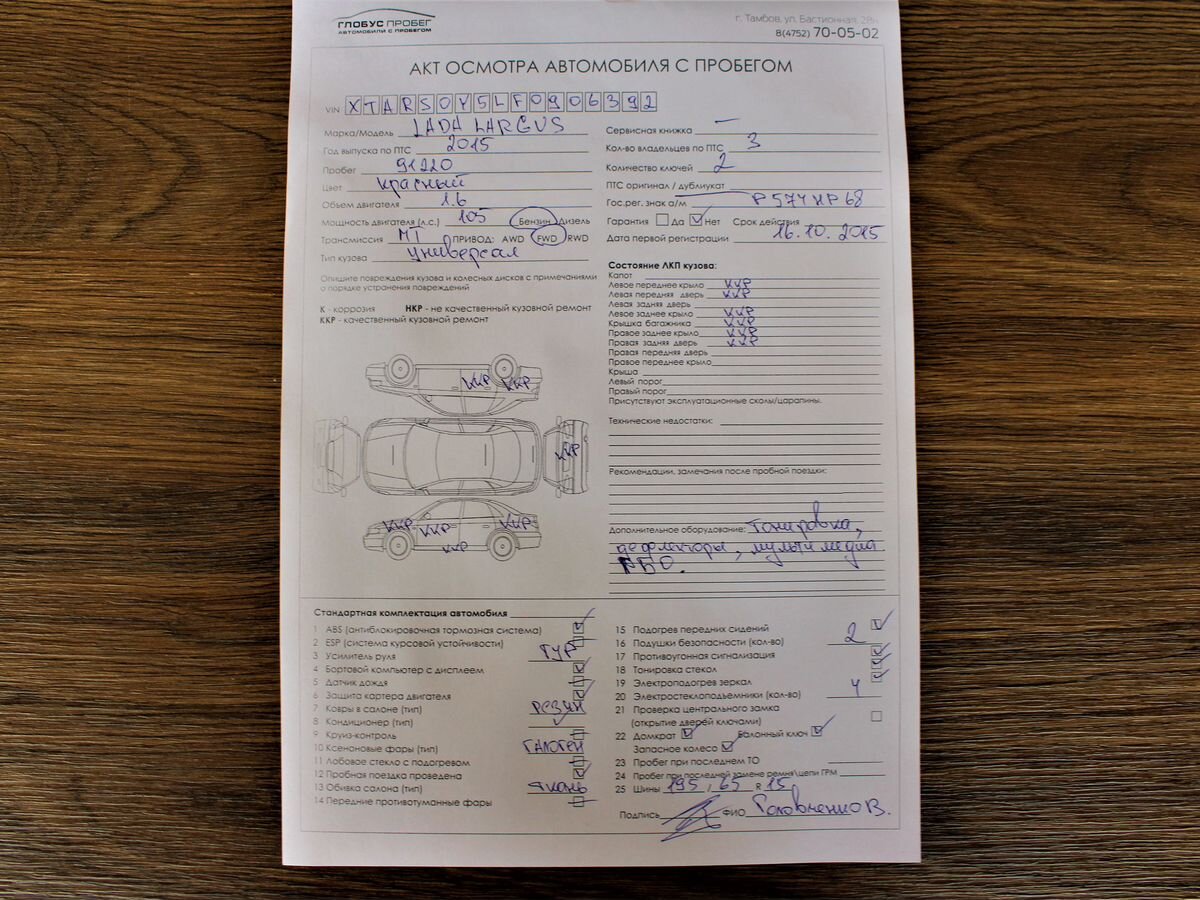 ГЛОБУС ПРОБЕГ
АВТОМОБИЛИ С ПРОБЕГОМ
г. Тамбов, ул. Бастионная, 28н
8(4752) 70-05-02
АКТ ОСМОТРА АВТОМОБИЛЯ С ПРОБЕГОМ
VIN XTARS0Y5LF0906392
Марка/Модель LADA LARGUS
Год выпуска по ПТС 2015
Пробег 91220
Цвет красный
Объем двигателя 1.6
Мощность двигателя (л.с.) 105 Бензин Дизель
Трансмиссия МТ ПРИВОД: AWD FWD RWD
Тип кузова универсал
Опишите повреждения кузова и колесных дисков с примечаниями
о порядке устранения повреждений
К - коррозия НКР - не качественный кузовной ремонт
ККР - качественный кузовной ремонт
ККР ККР
ККР
ККР ККР ККР
ККР
Сервисная книжка —
Кол-во владельцев по ПТС 3
Количество ключей 2
ПТС оригинал / дубликат
Гос.рег. знак а/м Р577НР68
Гарантия Да Нет Срок действия
Дата первой регистрации 16.10.2015
Состояние ЛКП кузова:
Капот
Левое переднее крыло ККР
Левая передняя дверь ККР
Левая задняя дверь
Левое заднее крыло ККР
Крышка багажника ККР
Правое заднее крыло ККР
Правая задняя дверь ККР
Правая передняя дверь
Правое переднее крыло
Крыша
Левый порог
Правый порог
Присутствуют эксплуатационные сколы/царапины.
Технические недостатки:
Рекомендации, замечания после пробной поездки:
Дополнительное оборудование: Тонировка,
дефлекторы, мультимедиа
ГБО.
Стандартная комплектация автомобиля
1 ABS (антиблокировочная тормозная система)
2 ESP (система курсовой устойчивости)
3 Усилитель руля ГУР
4 Бортовой компьютер с дисплеем
5 Датчик дождя
6 Защита картера двигателя
7 Ковры в салоне (тип) резин
8 Кондиционер (тип)
9 Круиз-контроль
10 Ксеноновые фары (тип) галоген
11 Лобовое стекло с подогревом
12 Пробная поездка проведена
13 Обивка салона (тип) ткань
14 Передние противотуманные фары
15 Подогрев передних сидений
16 Подушки безопасности (кол-во) 2
17 Противоугонная сигнализация
18 Тонировка стекол
19 Электроподогрев зеркал
20 Электростеклоподъемники (кол-во) 4
21 Проверка центрального замка
(открытие дверей ключами)
22 Домкрат Балонный ключ
Запасное колесо
23 Пробег при последнем ТО
24 Пробег при последней замене ремня\цепи ГРМ
25 Шины 195 / 65 R 15
Подпись ФИО Головненко В.